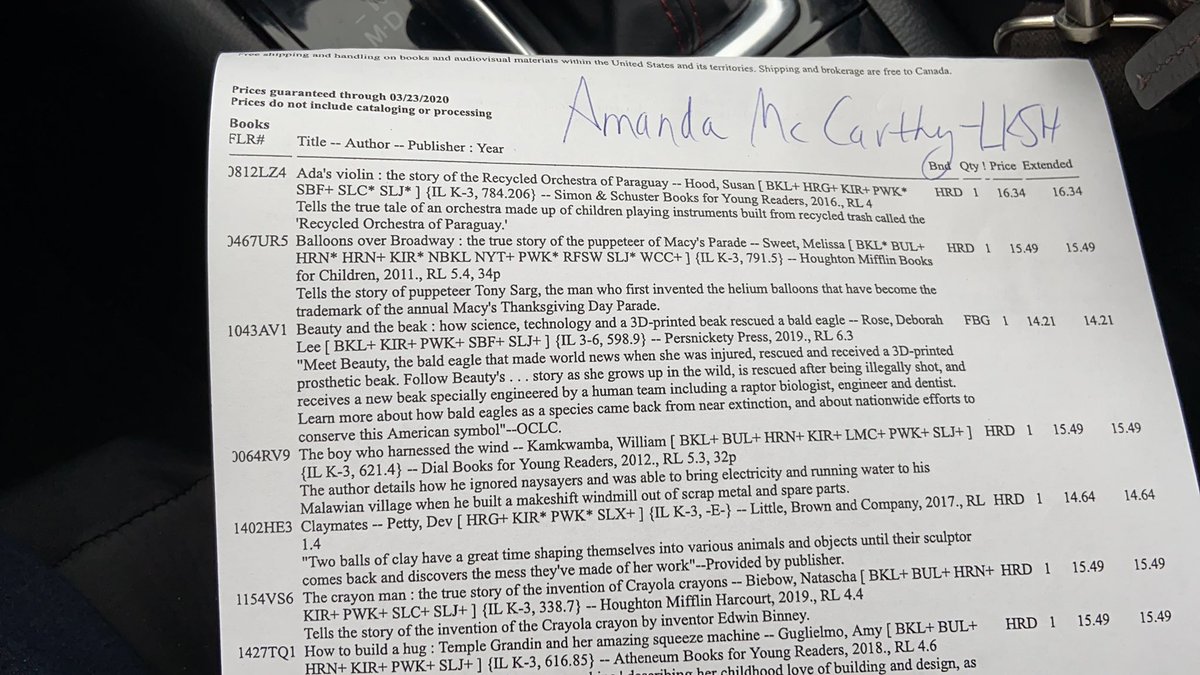 Free shipping and handling on books and audiovisual materials within the United States and its territories. Shipping and brokerage are free to Canada.
Prices guaranteed through 03/23/2020
Prices do not include cataloging or processing
Amanda McCarthy-LKSH
Books
FLR# Title -- Author -- Publisher : Year Bnd Qty ! Price Extended
0812LZ4 Ada's violin : the story of the Recycled Orchestra of Paraguay -- Hood, Susan [ BKL+ HRG+ KIR+ PWK* HRD 1 16.34 16.34
SBF+ SLC* SLJ* ] {IL K-3, 784.206} -- Simon & Schuster Books for Young Readers, 2016., RL 4
Tells the true tale of an orchestra made up of children playing instruments built from recycled trash called the
'Recycled Orchestra of Paraguay.'
0467UR5 Balloons over Broadway : the true story of the puppeteer of Macy's Parade -- Sweet, Melissa [ BKL* BUL+ HRD 1 15.49 15.49
HRN* HRN+ KIR* NBKL NYT+ PWK* RFSW SLJ* WCC+ ] {IL K-3, 791.5} -- Houghton Mifflin Books
for Children, 2011., RL 5.4, 34p
Tells the story of puppeteer Tony Sarg, the man who first invented the helium balloons that have become the
trademark of the annual Macy's Thanksgiving Day Parade.
1043AV1 Beauty and the beak : how science, technology and a 3D-printed beak rescued a bald eagle -- Rose, Deborah FBG 1 14.21 14.21
Lee [ BKL+ KIR+ PWK+ SBF+ SLJ+ ] {IL 3-6, 598.9} -- Persnickety Press, 2019., RL 6.3
"Meet Beauty, the bald eagle that made world news when she was injured, rescued and received a 3D-printed
prosthetic beak. Follow Beauty's . . . story as she grows up in the wild, is rescued after being illegally shot, and
receives a new beak specially engineered by a human team including a raptor biologist, engineer and dentist.
Learn more about how bald eagles as a species came back from near extinction, and about nationwide efforts to
conserve this American symbol"--OCLC.
0064RV9 The boy who harnessed the wind -- Kamkwamba, William [ BKL+ BUL+ HRN+ KIR+ LMC+ PWK+ SLJ+ ] HRD 1 15.49 15.49
{IL K-3, 621.4} -- Dial Books for Young Readers, 2012., RL 5.3, 32p
The author details how he ignored naysayers and was able to bring electricity and running water to his
Malawian village when he built a makeshift windmill out of scrap metal and spare parts.
1402HE3 Claymates -- Petty, Dev [ HRG+ KIR* PWK* SLX+ ] {IL K-3, -E-} -- Little, Brown and Company, 2017., RL HRD 1 14.64 14.64
1.4
"Two balls of clay have a great time shaping themselves into various animals and objects until their sculptor
comes back and discovers the mess they've made of her work"--Provided by publisher.
1154VS6 The crayon man : the true story of the invention of Crayola crayons -- Biebow, Natascha [ BKL+ BUL+ HRN+ HRD 1 15.49 15.49
KIR+ PWK+ SLC+ SLJ+ ] {IL K-3, 338.7} -- Houghton Mifflin Harcourt, 2019., RL 4.4
Tells the story of the invention of the Crayola crayon by inventor Edwin Binney.
1427TQ1 How to build a hug : Temple Grandin and her amazing squeeze machine -- Guglielmo, Amy [ BKL+ BUL+ HRD 1 15.49 15.49
HRN+ KIR+ PWK+ SLJ+ ] {IL K-3, 616.85} -- Atheneum Books for Young Readers, 2018., RL 4.6
describing her childhood love of building and design, as